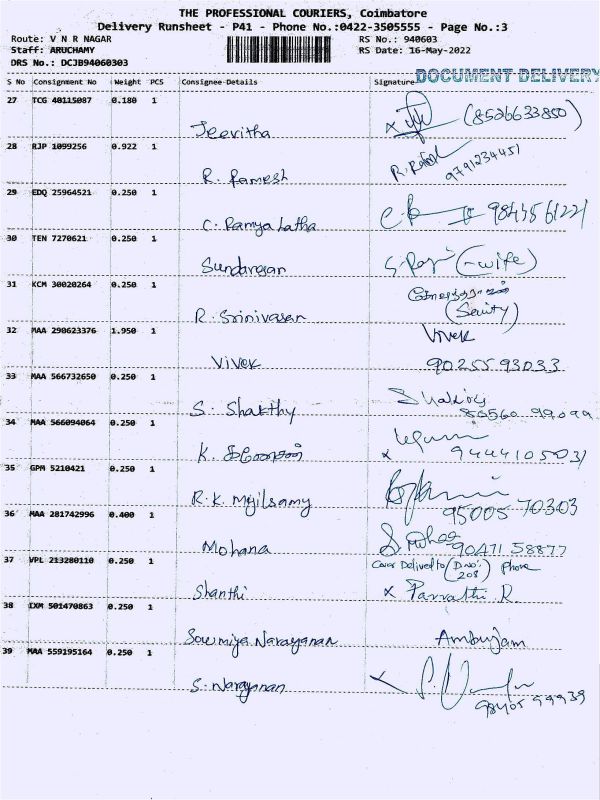 THE PROFESSIONAL COURIERS, Coimbatore
Delivery Runsheet - P41 - Phone No.:0422-3505555 - Page No.:3
Route: V N R NAGAR RS No.: 940603
Staff: ARUCHAMY RS Date: 16-May-2022
DRS No.: DCJB94060303
DOCUMENT DELIVERY
S No Consignment No Weight PCS Consignee-Details Signature
27 TCG 40115087 0.180 1
Jeevitha (8526633850)
28 RJP 1099256 0.922 1
R. Ramesh 9791234451
29 EDQ 25964521 0.250 1
C. Ramya Latha 9843561221
30 TEN 7270621 0.250 1
Sundaresan (-wife)
31 KCM 30020264 0.250 1
R. Srinivasan
32 MAA 290623376 1.950 1
Vivek
Vivek 90255 93033
33 MAA 566732650 0.250 1
S. Shakthy
34 MAA 566094064 0.250 1
K. 9444105031
35 GPM 5210421 0.250 1
R.K. Myilsamy 95005 70303
36 MAA 281742996 0.400 1
Mohana 90471 58877
37 VPL 213280110 0.250 1
Cover Delivered to (D.No: 208) Phone
Shanthi x Parvathi R
38 IXM 501470863 0.250 1
Sowmiya Narayanan Ambujam
39 MAA 559195164 0.250 1
S. Narayanan